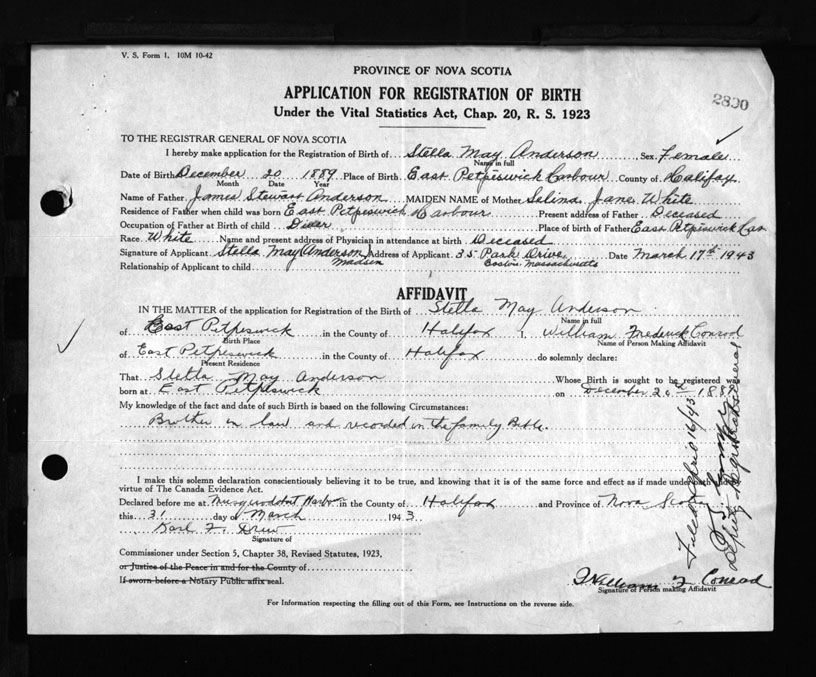 V. S. Form 1. 10M 10-42
PROVINCE OF NOVA SCOTIA
APPLICATION FOR REGISTRATION OF BIRTH
2890
Under the Vital Statistics Act, Chap. 20, R. S. 1923
TO THE REGISTRAR GENERAL OF NOVA SCOTIA
I hereby make application for the Registration of Birth of Stella May Anderson Sex Female
Name in full
Date of Birth December 20 1889 Place of Birth East Petpeswick Harbour County of Halifax
Month Date Year
Name of Father James Stewart Anderson MAIDEN NAME of Mother Selina Jane White
Residence of Father when child was born East Petpeswick Harbour Present address of Father Deceased
Occupation of Father at Birth of child Place of birth of Father East Petpeswick Har
Race White Name and present address of Physician in attendance at birth Deceased
Signature of Applicant Stella May (Anderson) Madsen Address of Applicant 35 Park Drive Boston Massachusetts Date March 17th 1943
Relationship of Applicant to child
AFFIDAVIT
IN THE MATTER of the application for Registration of Birth of Stella May Anderson
Name in full
of East Petpeswick in the County of Halifax I, William Frederick Conrod
Birth Place Name of Person Making Affidavit
of East Petpeswick in the County of Halifax do solemnly declare:
Present Residence
That Stella May Anderson Whose Birth is sought to be registered was
born at East Petpeswick on December 20th 1889
My knowledge of the fact and date of such Birth is based on the following Circumstances:
Brother in law and recorded in the family Bible.
I make this solemn declaration conscientiously believing it to be true, and knowing that it is of the same force and effect as if made under oath and
virtue of The Canada Evidence Act.
Declared before me at Musquodobit Harbor in the County of Halifax and Province of Nova Scot
this 31 day of March 1943
Karl F. Drew
Signature of
Commissioner under Section 5, Chapter 38, Revised Statutes, 1923,
or Justice of the Peace in and for the County of
If sworn before a Notary Public affix seal.
William F Conrod
Signature of Person making Affidavit
For Information respecting the filling out of this Form, see Instructions on the reverse side.
Filed April 16/43
Deputy Registrar General